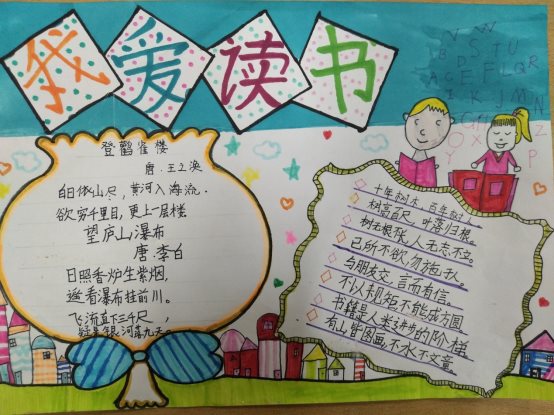 我爱读书
登鹳雀楼
唐·王之涣
白日依山尽，黄河入海流.
欲穷千里目，更上一层楼
望庐山瀑布
唐·李白
日照香炉生紫烟，
遥看瀑布挂前川。
飞流直下三千尺，
疑是银河落九天。
十年树木，百年树人。
树高百尺，叶落归根。
树无根张，人无志不立。
己所不欲，勿施于人
与朋友交，言而有信。
不以规矩不能成方圆
书籍是人类进步的阶梯
有山皆图画 不水不文章。